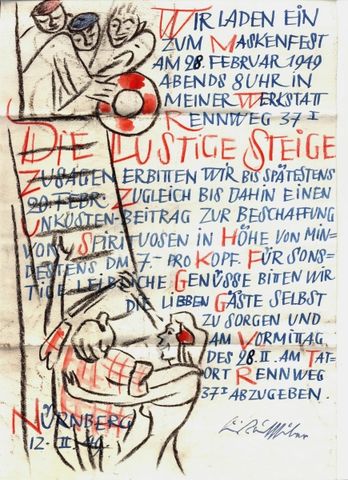 WIR LADEN EIN
ZUM MASKENFEST
AM 28. FEBRUAR 1949
ABENDS 8 UHR IN
MEINER WERKSTATT
RENNWEG 37 I
DIE LUSTIGE STEIGE
ZUSAGEN ERBITTEN WIR BIS SPÄTESTENS
20. FEBR. ZUGLEICH BIS DAHIN EINEN
UNKOSTEN-BEITRAG ZUR BESCHAFFUNG
VON SPIRITUOSEN IN HÖHE VON MIN-
DESTENS DM 7.- PRO KOPF. FÜR SONS-
TIGE LEIBLICHE GENÜSSE BITTEN WIR
DIE LIEBEN GÄSTE SELBST
ZU SORGEN UND
AM VORMITTAG
DES 28. II. AM TAT-
ORT RENNWEG
37 I ABZUGEBEN.
NÜRNBERG
12. II. 49.